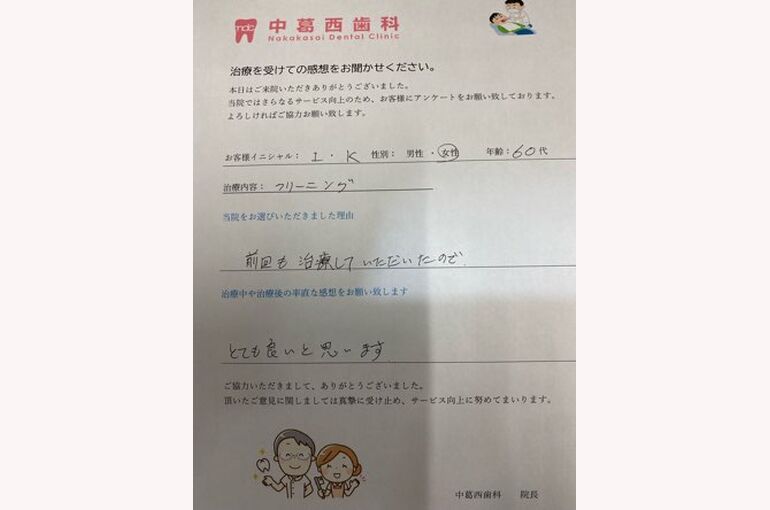 mdb 中葛西歯科
Nakakasai Dental Clinic
治療を受けての感想をお聞かせください。
本日はご来院いただきありがとうございました。
当院ではさらなるサービス向上のため、お客様にアンケートをお願い致しております。
よろしければご協力お願い致します。
お客様イニシャル： I ・ K 性別： 男性 ・ 女性 年齢：60代
治療内容： クリーニング
当院をお選びいただきました理由
前回も治療していただいたので
治療中や治療後の率直な感想をお願い致します
とても良いと思います
ご協力いただきまして、ありがとうございました。
頂いたご意見に関しましては真摯に受け止め、サービス向上に努めてまいります。
中葛西歯科 院長